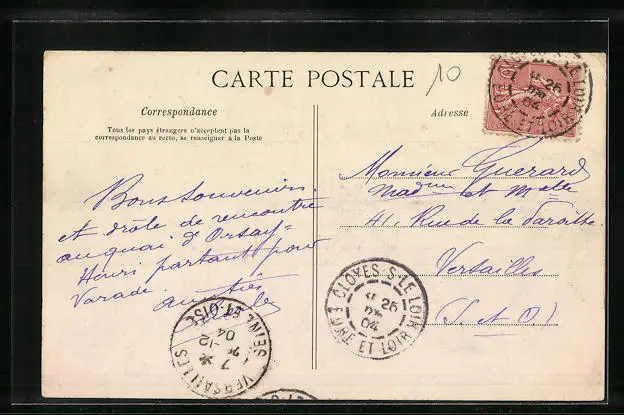 CARTE POSTALE
10
Correspondance
Adresse
Tous les pays étrangers n'acceptent pas la
correspondance au recto, se renseigner à la Poste
Bons souvenirs
et drôle de rencontre
au quai d'Orsay-
Henri partant pour
Varade.
Monsieur Guerard
Madme et Melle
41, Rue de la Paroisse.
Versailles
(S. et O.)
CLOYES S-LE LOIR
26
04
EURE ET LOIR
VERSAILLES
SEINE-ET-OISE
7
12
04
LE LOIR
26
04
EURE ET LOIR